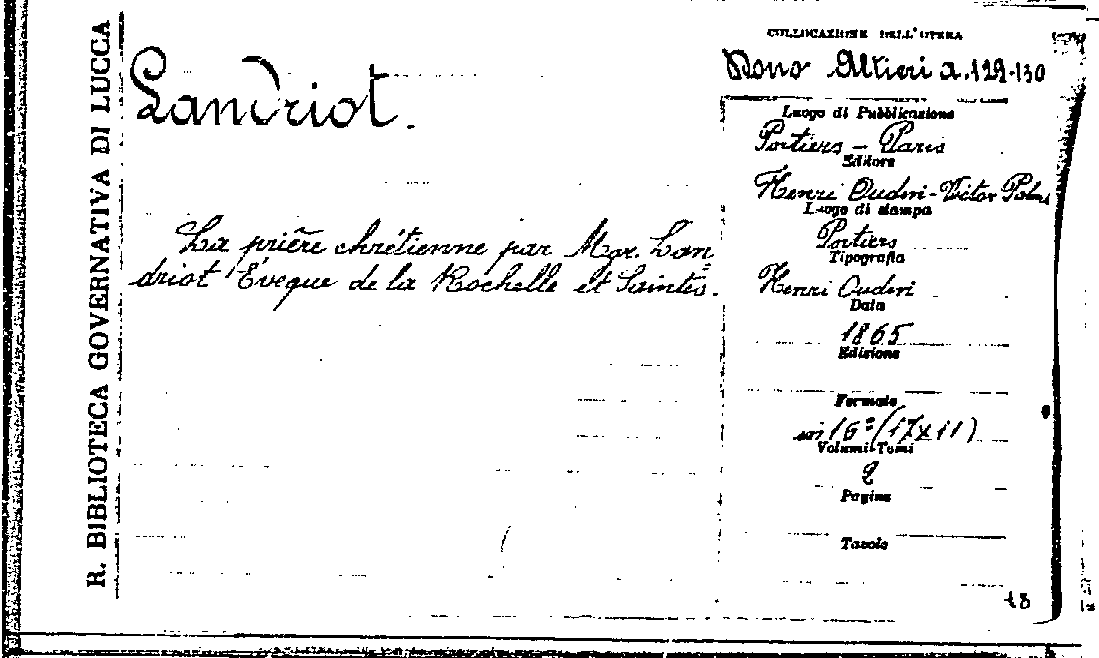 R. BIBLIOTECA GOVERNATIVA DI LUCCA
Landriot.
La prière chrétienne par Mgr. Lan=
driot Évêque de la Rochelle et Saintes.
COLLOCAZIONE DELL'OPERA
Dono Altieri a. 129-130
Luogo di Pubblicazione
Poitiers - Paris
Editore
Henri Oudin - Victor Palmé
Luogo di stampa
Poitiers
Tipografia
Henri Oudin
Data
1865
Edizione
Formato
in 16º (17x11)
Volumi-Tomi
2
Pagine
Tavole
18